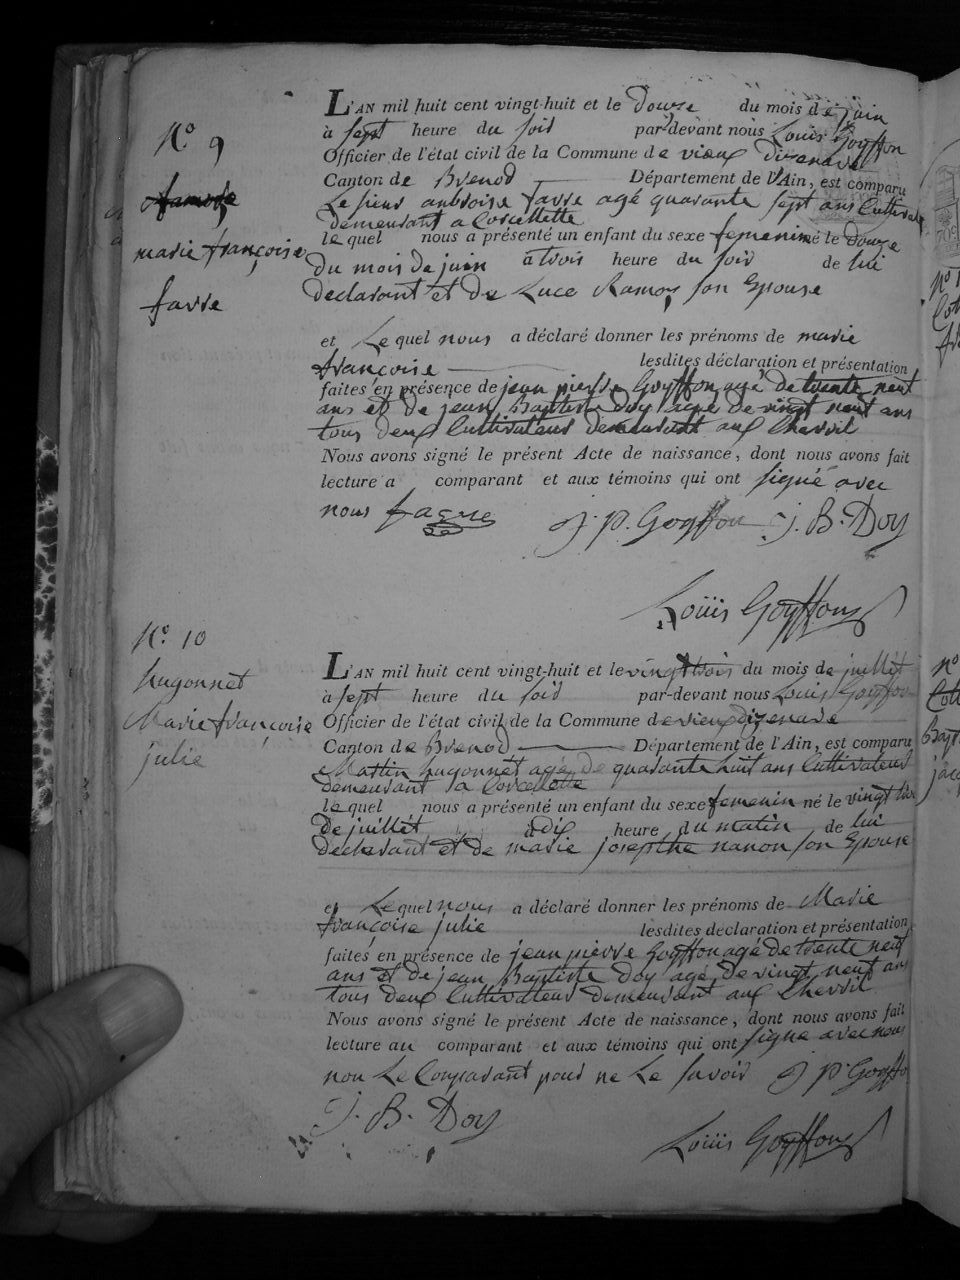 N° 9
marie françoise
favre
L'AN mil huit cent vingt-huit et le douze du mois de juin
à sept heure du soir par-devant nous Louis Goyffon
Officier de l'état civil de la Commune de vieux dizenave
Canton de Brenod Département de l'Ain, est comparu
Le sieur anbroise favre agé quarante sept ans Cultivateur
demeurant a Corcellette
le quel nous a présenté un enfant du sexe femenin né le douze
du mois de juin à trois heure du soir de lui
declarant et de Luce Ramoz son Epouse
et Le quel nous a déclaré donner les prénoms de marie
françoise lesdites déclaration et présentation
faites en présence de jean pierre Goyffon agé de trente neuf
ans et de jean Baptiste Doy agé de vingt neuf ans
tous deux Cultivateurs demeurant aux Cherril
Nous avons signé le présent Acte de naissance, dont nous avons fait
lecture a comparant et aux témoins qui ont signé avec
nous favre J. P. Goyffon J. B. Doy
Loüis Goyffon
N° 10
hugonnet
Marie françoise
julie
L'AN mil huit cent vingt-huit et le vingt trois du mois de juillet
à sept heure du soir par-devant nous Louis Goyffon
Officier de l'état civil de la Commune de vieux dizenave
Canton de Brenod Département de l'Ain, est comparu
Martin hugonnet agé de quarante huit ans Cultivateur
demeurant a Corcelette
le quel nous a présenté un enfant du sexe femenin né le vingt trois
de juillet à dix heure du matin de lui
declarant et de marie josepthe nanon son Epouse
et Le quel nous a déclaré donner les prénoms de Marie
françoise julie lesdites déclaration et présentation
faites en présence de jean pierre Goyffon agé de trente neuf
ans et de jean Baptiste Doy agé de vingt neuf ans
tous deux Cultivateur demeurant aux Cherril
Nous avons signé le présent Acte de naissance, dont nous avons fait
lecture au comparant et aux témoins qui ont signé avec nous
non Le Comparant pour ne Le savoir J P Goyffon
J. B. Doy
Loüis Goyffon